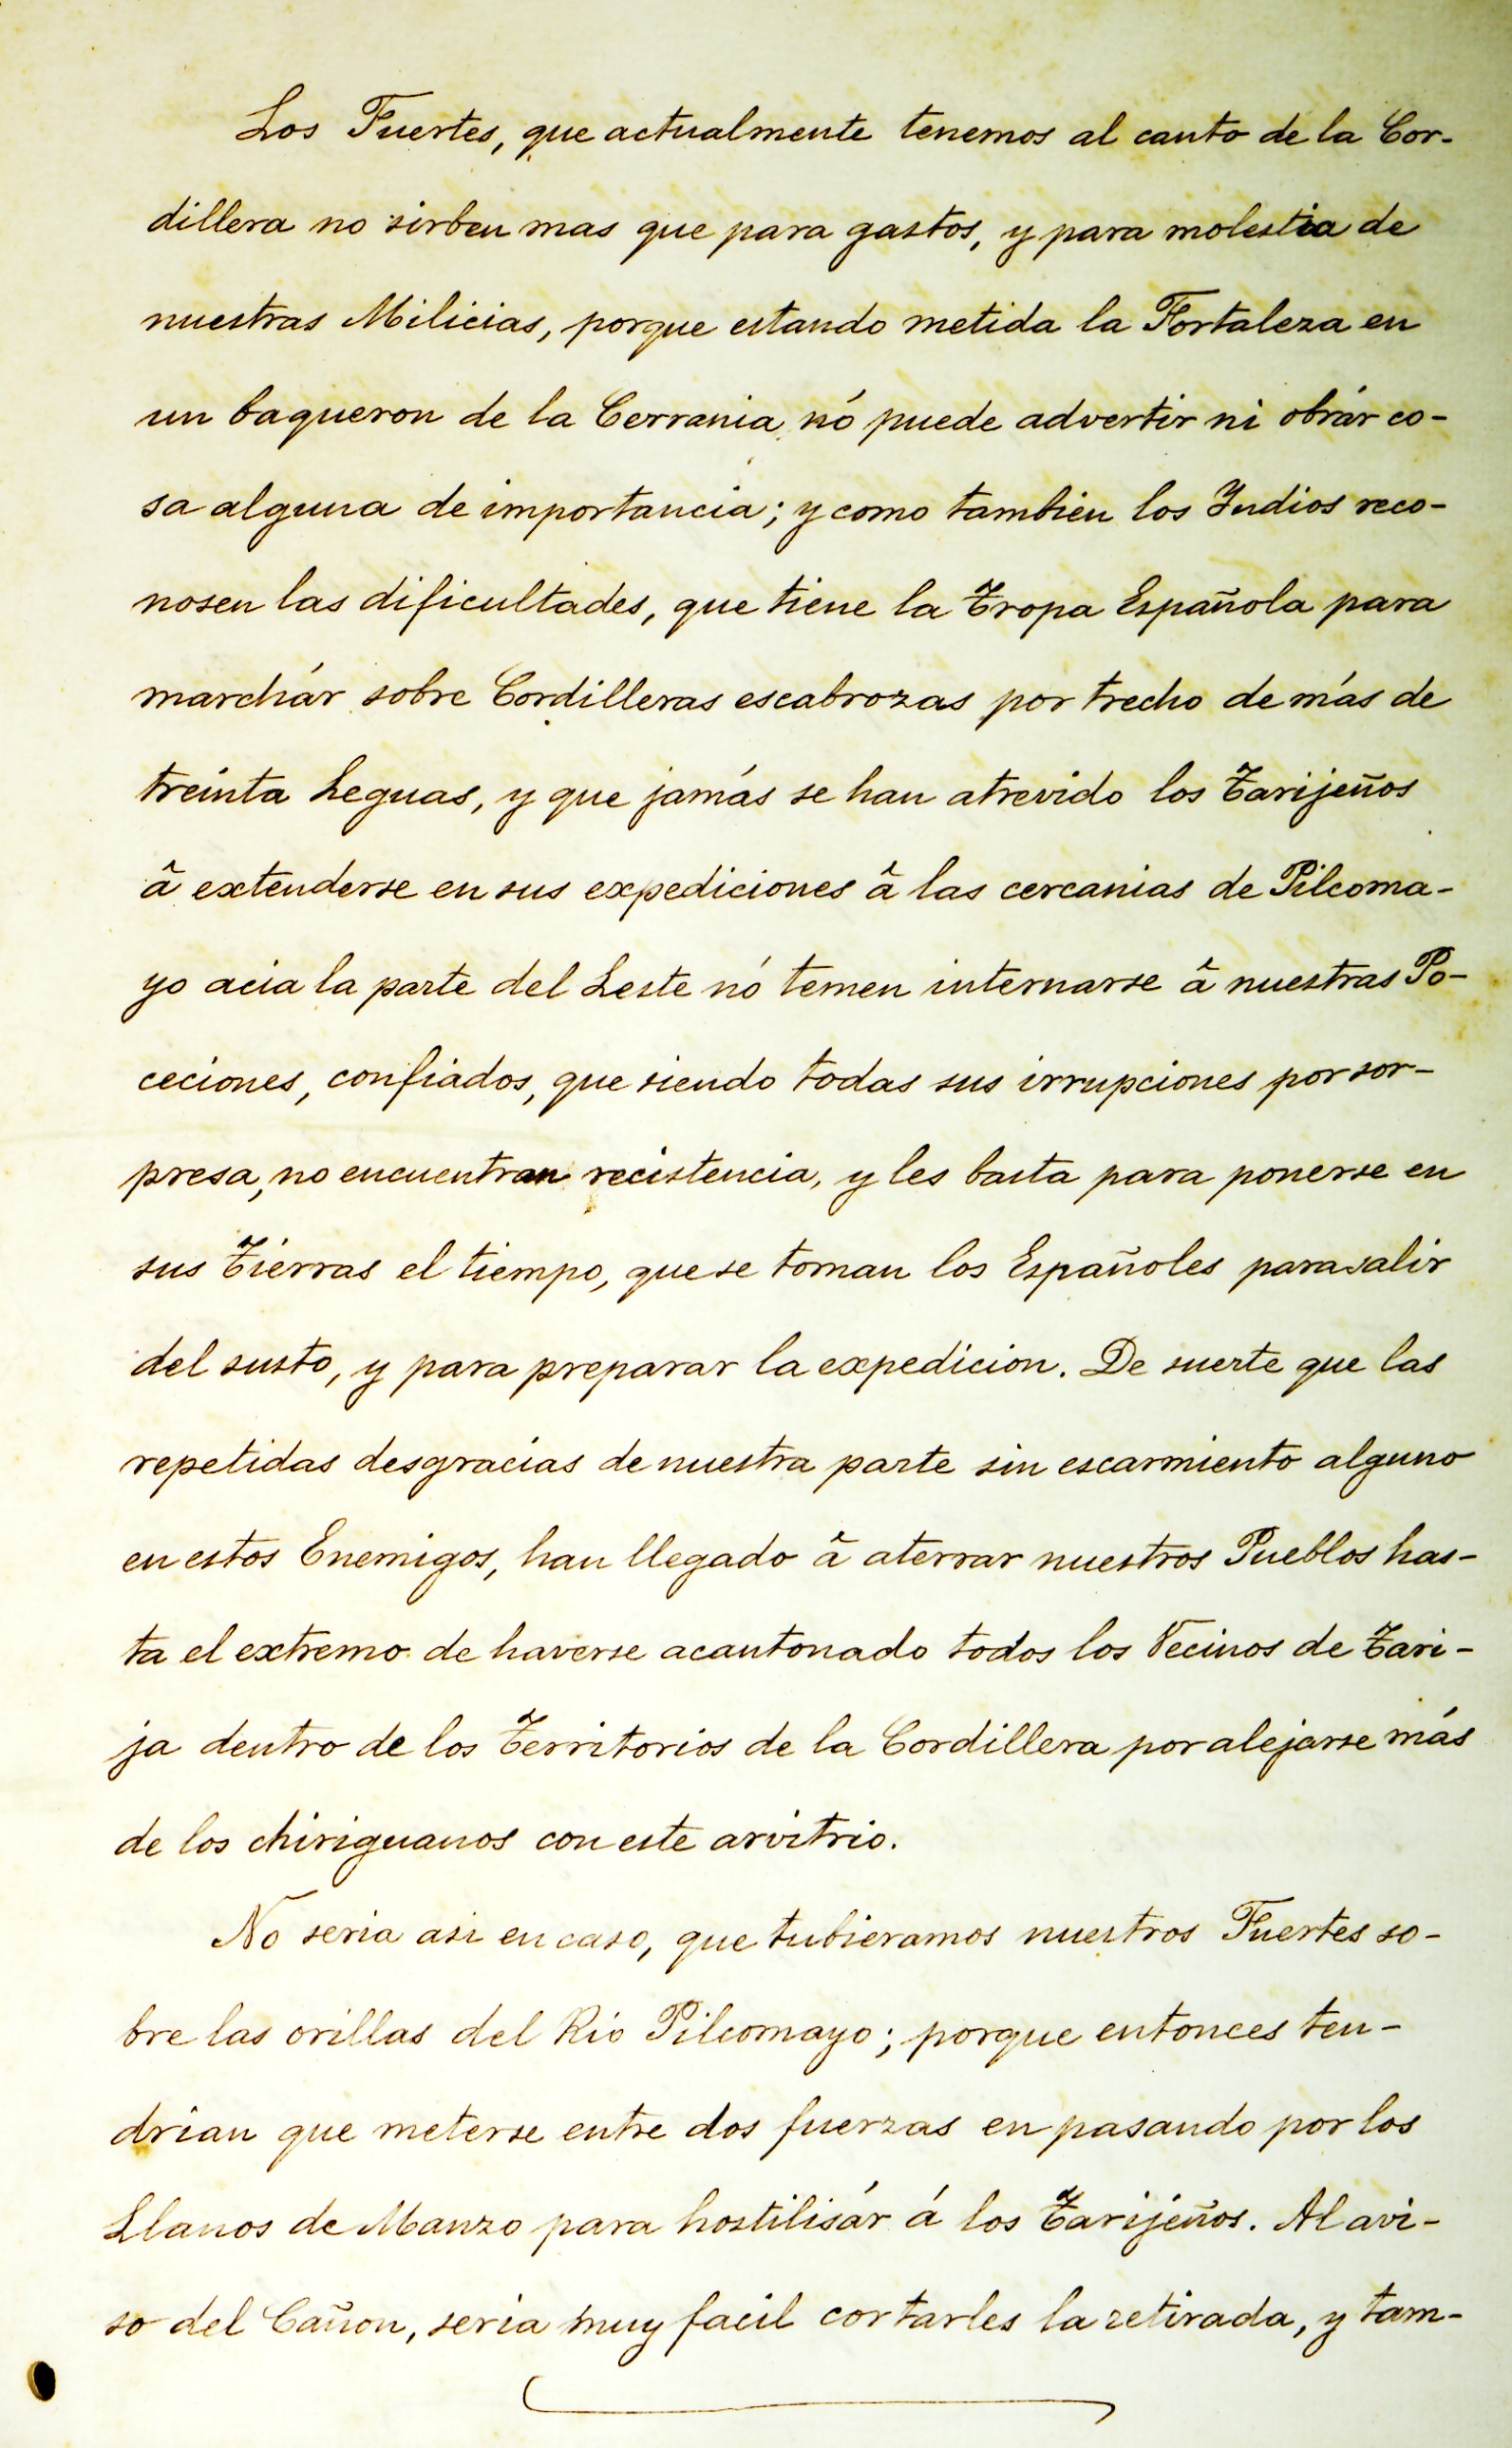 Los Fuertes, que actualmente tenemos al canto de la Cor-
dillera no sirben mas que para gastos, y para molestia de
nuestras Milicias, porque estando metida la Fortaleza en
un baqueron de la Cerrania nó puede advertir ni obrár co-
sa alguna de importancia; y como tambien los Yndios reco-
nosen las dificultades, que tiene la Tropa Española para
marchár sobre Cordilleras escabrozas por trecho de más de
treinta Leguas, y que jamás se han atrevido los Tarijeños
â extenderse en sus expediciones â las cercanias de Pilcoma-
yo acia la parte del Leste nó temen internarse â nuestras Po-
ceciones, confiados, que siendo todas sus irrupciones por sor-
presa, no encuentran recistencia, y les basta para ponerse en
sus Tierras el tiempo, que se toman los Españoles para salir
del susto, y para preparar la expedicion. De suerte que las
repetidas desgracias de nuestra parte sin escarmiento alguno
en estos Enemigos, han llegado â aterrar nuestros Pueblos has-
ta el extremo de haverse acantonado todos los Vecinos de Tari-
ja dentro de los Territorios de la Cordillera por alejarse más
de los chiriguanos con este arvitrio.
No seria asi en caso, que tubieramos nuestros Fuertes so-
bre las orillas del Rio Pilcomayo; porque entonces ten-
drian que meterse entre dos fuerzas en pasando por los
Llanos de Manzo para hostilisár á los Tarijeños. Al avi-
so del Cañon, seria muy facil cortarles la retirada, y tam-